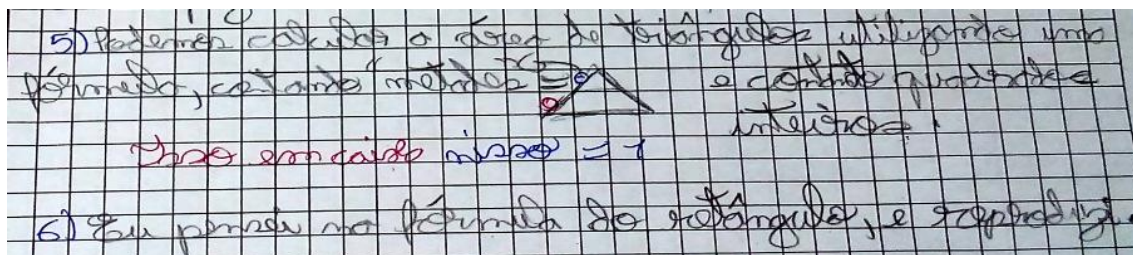 5) Podemos calcular a área de triângulos utilizando uma
fórmula, contando metades = e contando quadrados
inteiros.
encaixo nisso = 1
6) Eu pensei na fórmula do retângulo, e reproduzi.